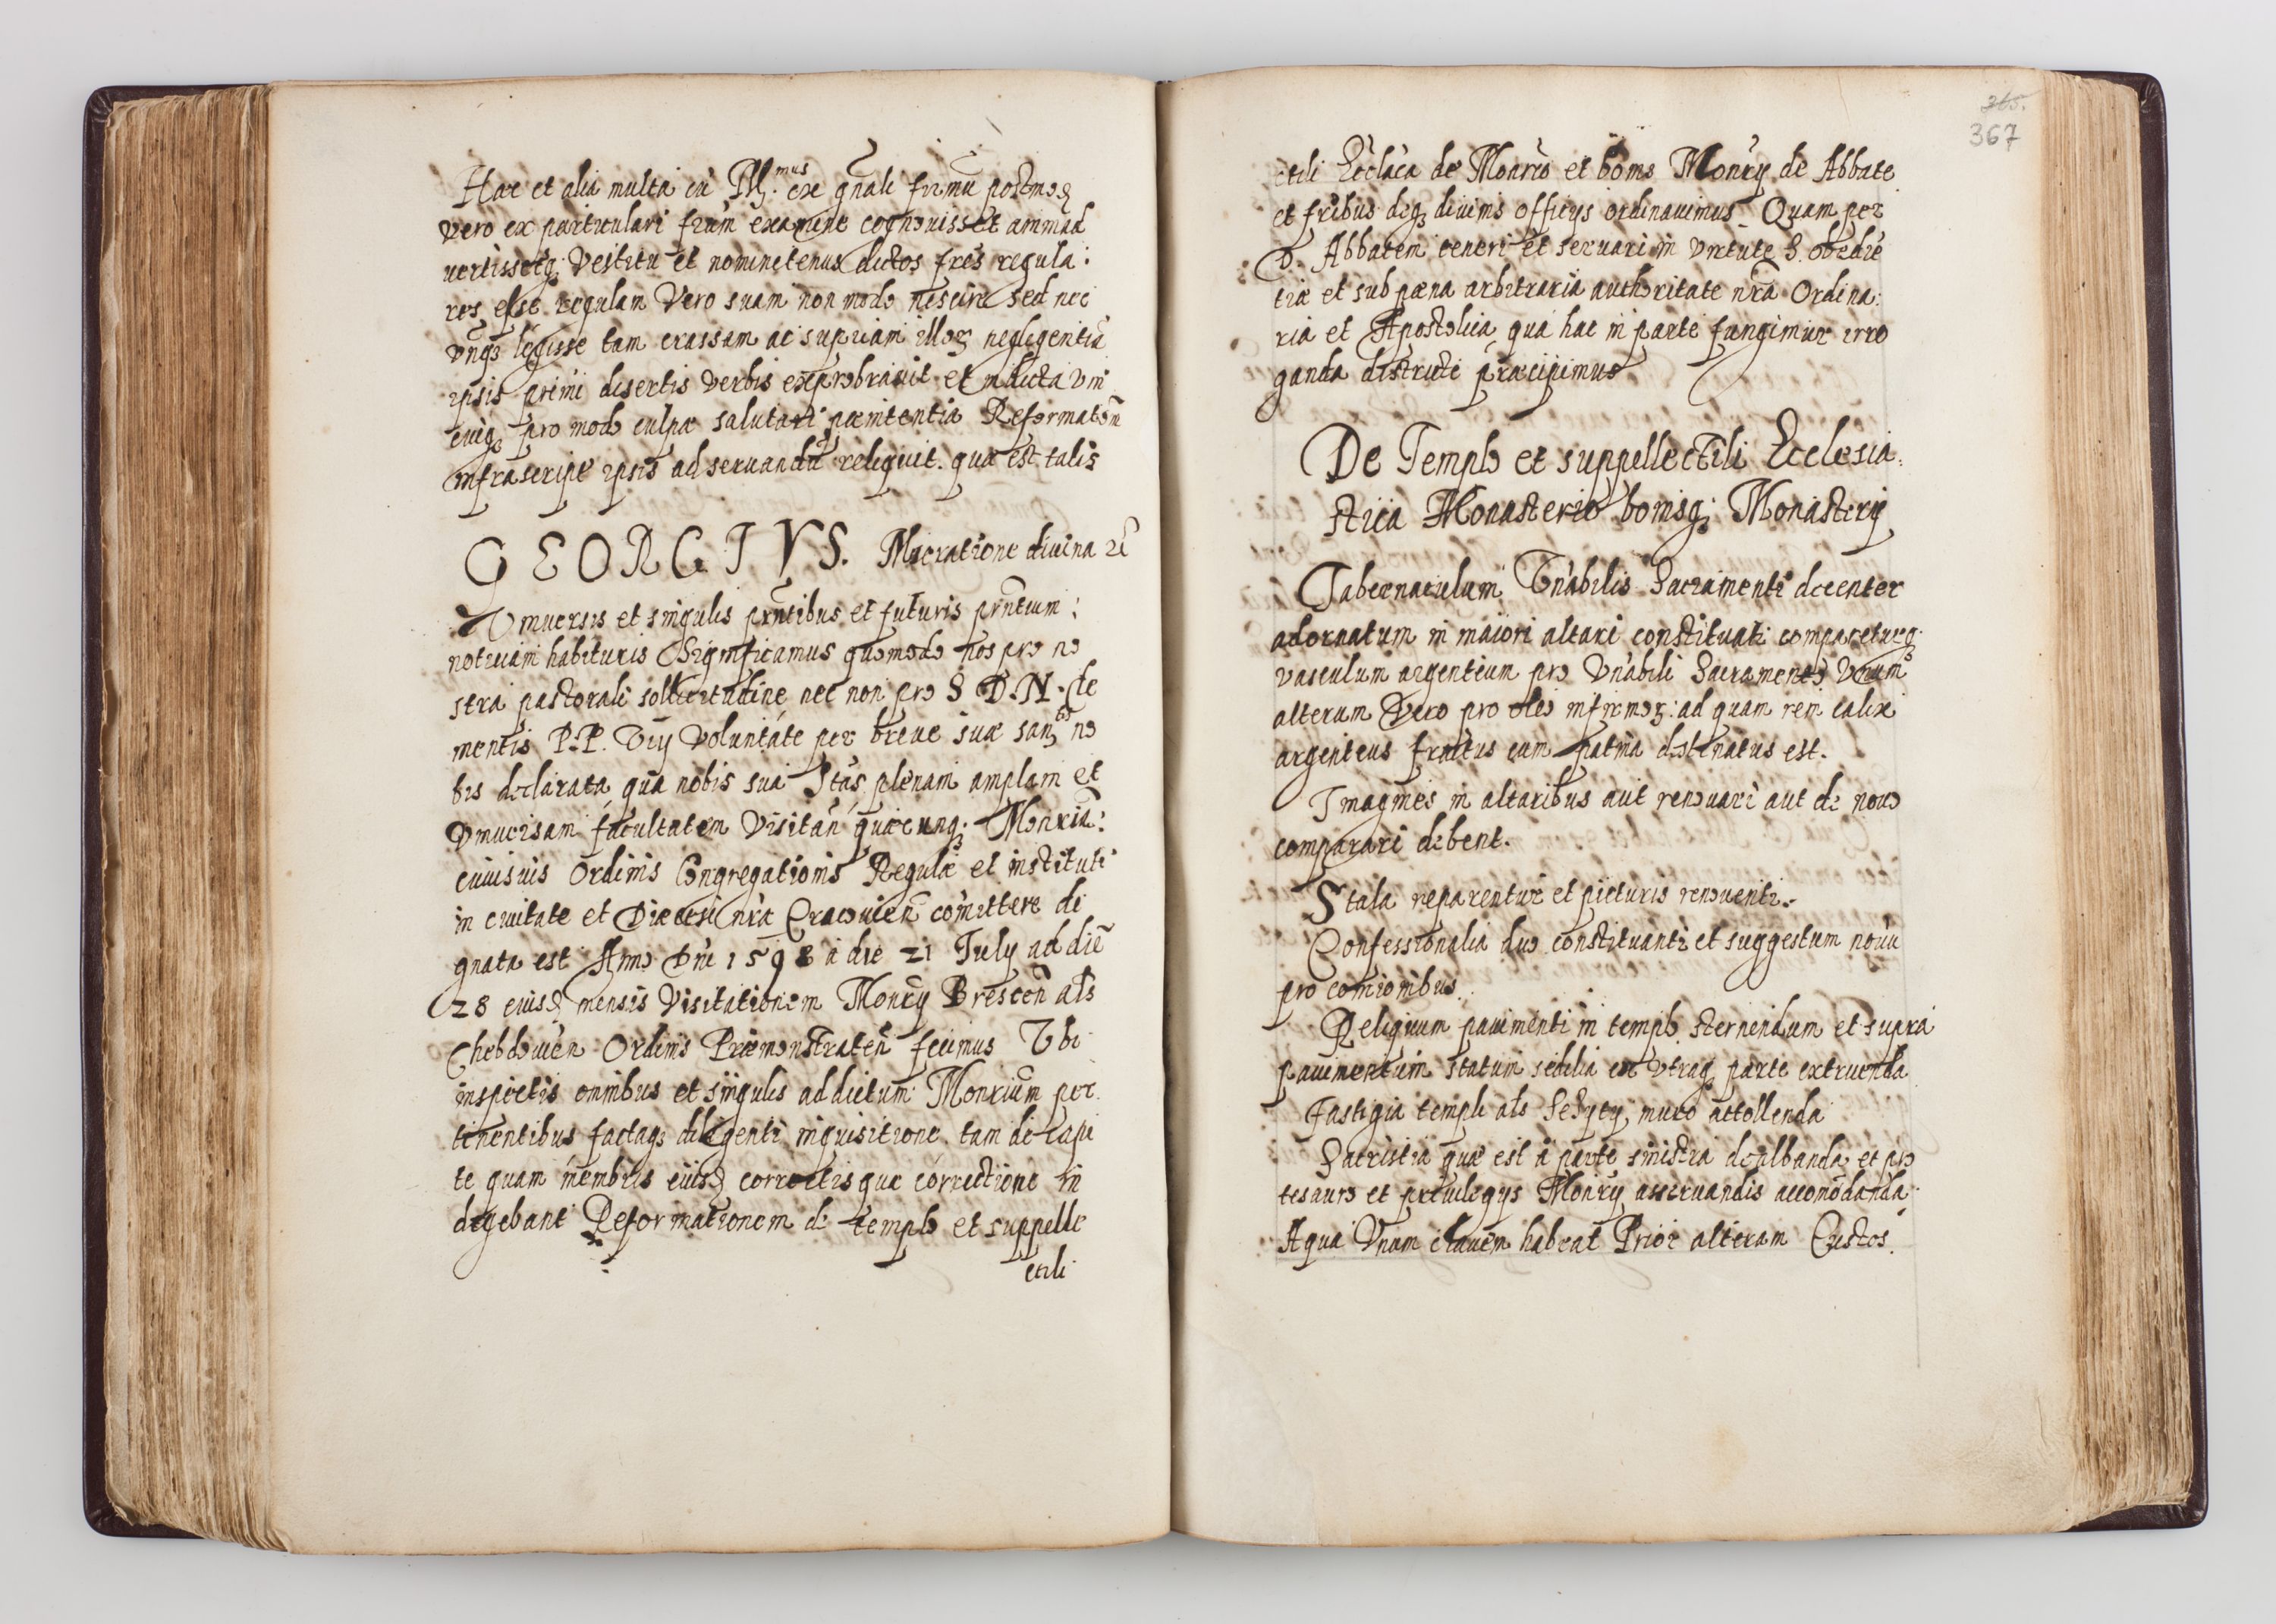 Hæc et alia multa cũ Illmus ex gñali primũ postmodũ
vero ex particulari frũm examine cognovisset animad
vertissetq; vestitu et nominetenus dictos frẽs regula:
res esse regulam vero suam non modo nescire sed nec
vnq̃ legisse tam crassam ac supinam illorũ negligentiã
ipsis primũ disertis verbis exprobravit et indicta vni
cuiq; pro modo culpæ salutari pœnitentia Reformatõm
infrascript ipsis ad servandũ reliquit. quæ est talis
GEORGIVS. Miseratione divina &c
Vniversis et singulis prñtibus et futuris prñtium:
notitiam habituris Significamus quomodo nos pro no
stra pastorali sollicitudine nec non pro S D. N. Cle
mentis P. P. VIII voluntate per breve suæ sanctis no
bis declarata qua nobis sua Stas plenam amplam et
vniversam facultatem visitañ quæcunq; Monria:
cuiusvis Ordinis Congregationis Regulæ et instituti
in civitate et Diæcesi nrã Cracovieñ comittere di
gnata est Anno Dni 1598 a die 21 July ad diẽ
28 eiusd mensis Visitationem Monrÿ Brescen als
Chebdovien Ordinis Præmonstrateñ fecimus Vbi
inspectis omnibus et singulis ad dictum Monrium per
tinentibus factaq; diligenti inquisitione tam de capi
te quam membris eiusd correctisque correctione in
digebant Reformationem de templo et suppelle
ctili
365.
367
ctili Ecclãca de Monrio et bonis Monrÿ de Abbate
et frĩbus deq; divinis officijs ordinavimus Quam per
D. Abbatem teneri et servari in virtute S. obediẽ
tiæ et sub pœna arbitraria authoritate nrã Ordina:
ria et Apostolica qua hac in parte fungimur irro
ganda districte præcipimus
De Templo et suppellectili Ecclesia:
stica Monasterio bonisq; Monasterij
Tabernaculum Vnãbilis Sacramenti decenter
adornatum in maiori altari constituati compareturq;
vasculum argenteum pro Vnãbili Sacramento Vnum
alterum Vero pro oleo infirmorũ: ad quam rem calix
argenteus fractus cum patina destinatus est.
Imagines in altaribus aut renovari aut de novo
comparari debent.
Stala reparentur et picturis renoventr.
Confessionalia duo constituantr et suggestum novũ
pro contionibus.
Reliquum pavimenti in templo sternendum et supra
pavimentum statum sedilia ex vtraq; parte extruenda
Fastigia templi als Sczyty muro attollenda
Sacristia quæ est a parte sinistra dealbanda et pro
tesauro et privilegijs Monrÿ asservandis accomodanda.
A qua Vnam clavem habeat Prior alteram Custos.